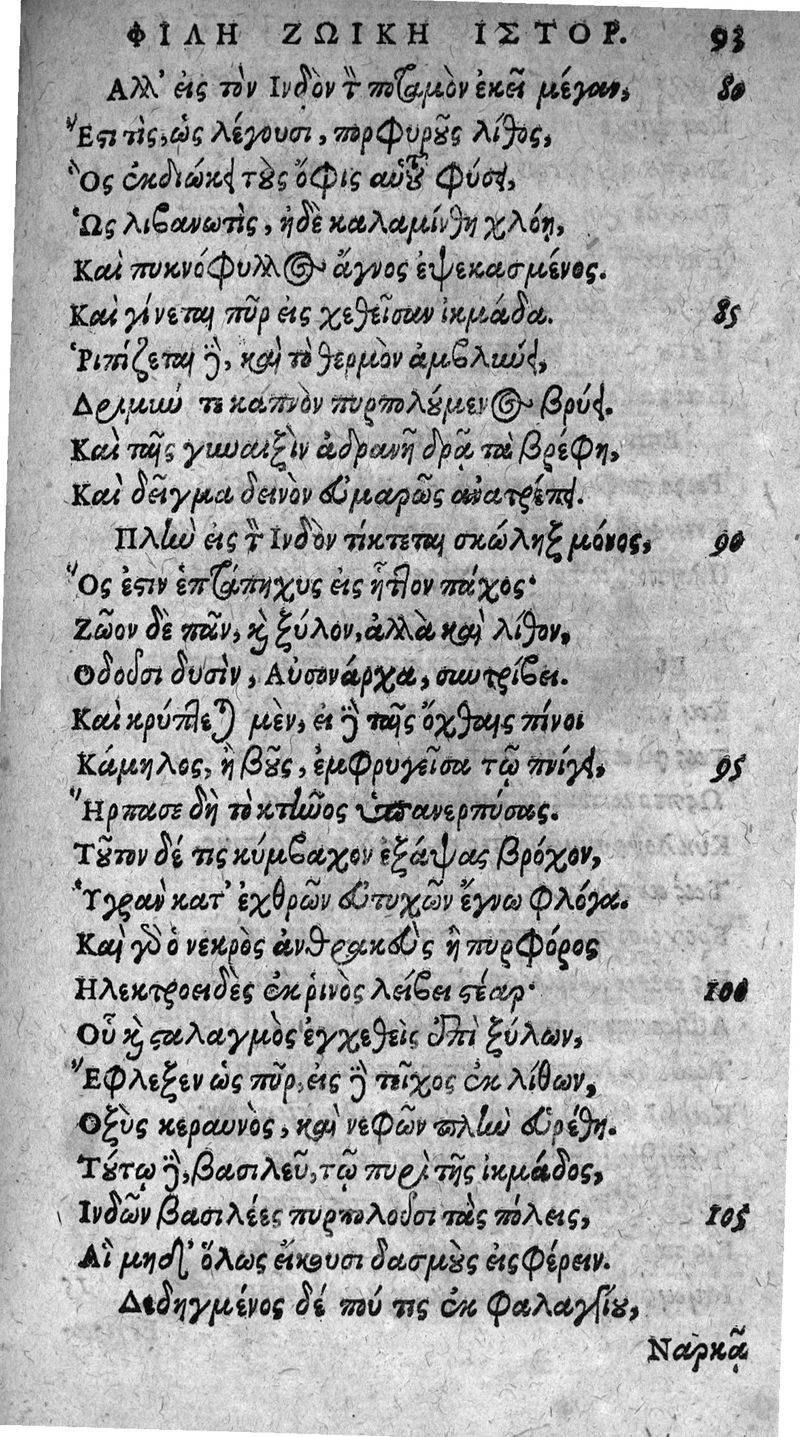 ΦΙΛΗ ΖΩΙΚΗ ΙΣΤΟΡ. 93
Αλλ' εἰς τὸν Ἰνδὸν τὸν ποταμὸν ἐκεῖ μέγαν, 80
Ἔστι τὶς, ὡς λέγουσι, πορφυροῦς λίθος,
Ὃς ἐκδιώκει τοὺς ὄφις αὐτοῦ φύσει,
Ὡς λιβανωτὶς, ἠδὲ καλαμίνθη χλόη,
Καὶ πυκνόφυλλος ἄγνος ἐψεκασμένος.
Καὶ γίνεται πῦρ εἰς χεθεῖσαν ἰκμάδα. 85
Ῥιπίζεται δὲ, καὶ τὸ θερμὸν ἀμβλύνει,
Δριμὺν τε καπνὸν πυρπολούμενος βρύει.
Καὶ ταῖς γυναιξὶν ἀδρανῆ δρᾷ τὰ βρέφη,
Καὶ δεῖγμα δεινὸν εὐμαρῶς ἀνατρέπει.
Πλὴν εἰς τὸν Ἰνδὸν τίκτεται σκώληξ μόνος, 90
Ὅς ἐστιν ἑπτάπηχυς εἰς ἧττον πάχος·
Ζῶον δὲ πᾶν, καὶ ξύλον, ἀλλὰ καὶ λίθον,
Οδοῦσι δυσὶν, Αὐσονάρχα, συντρίβει.
Καὶ κρύπτεται μὲν, εἰ δὲ ταῖς ὄχθαις πίνοι
Κάμηλος, ἢ βοῦς, ἐμφρυγεῖσα τῷ πνίγει, 95
Ἥρπασε δὴ τὸ κτῆνος ὑπανερπύσας.
Τοῦτον δέ τις κύμβαχον ἐξάψας βρόχον,
Ὑγρὰν κατ' ἐχθρῶν εὐτυχῶν ἔγνω φλόγα.
Καὶ γὰρ ὁ νεκρὸς ἀνθρακεὺς ἢ πυρφόρος
Ηλεκτροειδὲς ἐκ ῥινὸς λείβει στέαρ· 100
Οὗ καὶ σταλαγμὸς ἐγχεθεὶς ἐπὶ ξύλων,
Ἔφλεξεν ὡς πῦρ, εἰς δὲ τεῖχος ἐκ λίθων,
Οξὺς κεραυνὸς, καὶ νεφῶν πλὴν εὑρέθη.
Τούτῳ δὲ, βασιλεῦ, τῷ πυρὶ τῆς ἰκμάδος,
Ινδῶν βασιλέες πυρπολοῦσι τὰς πόλεις, 105
Αἳ μηδ' ὅλως εἴκουσι δασμοὺς εἰσφέρειν.
Δεδηγμένος δέ πού τις ἐκ φαλαγγίου,
Ναρκᾷ